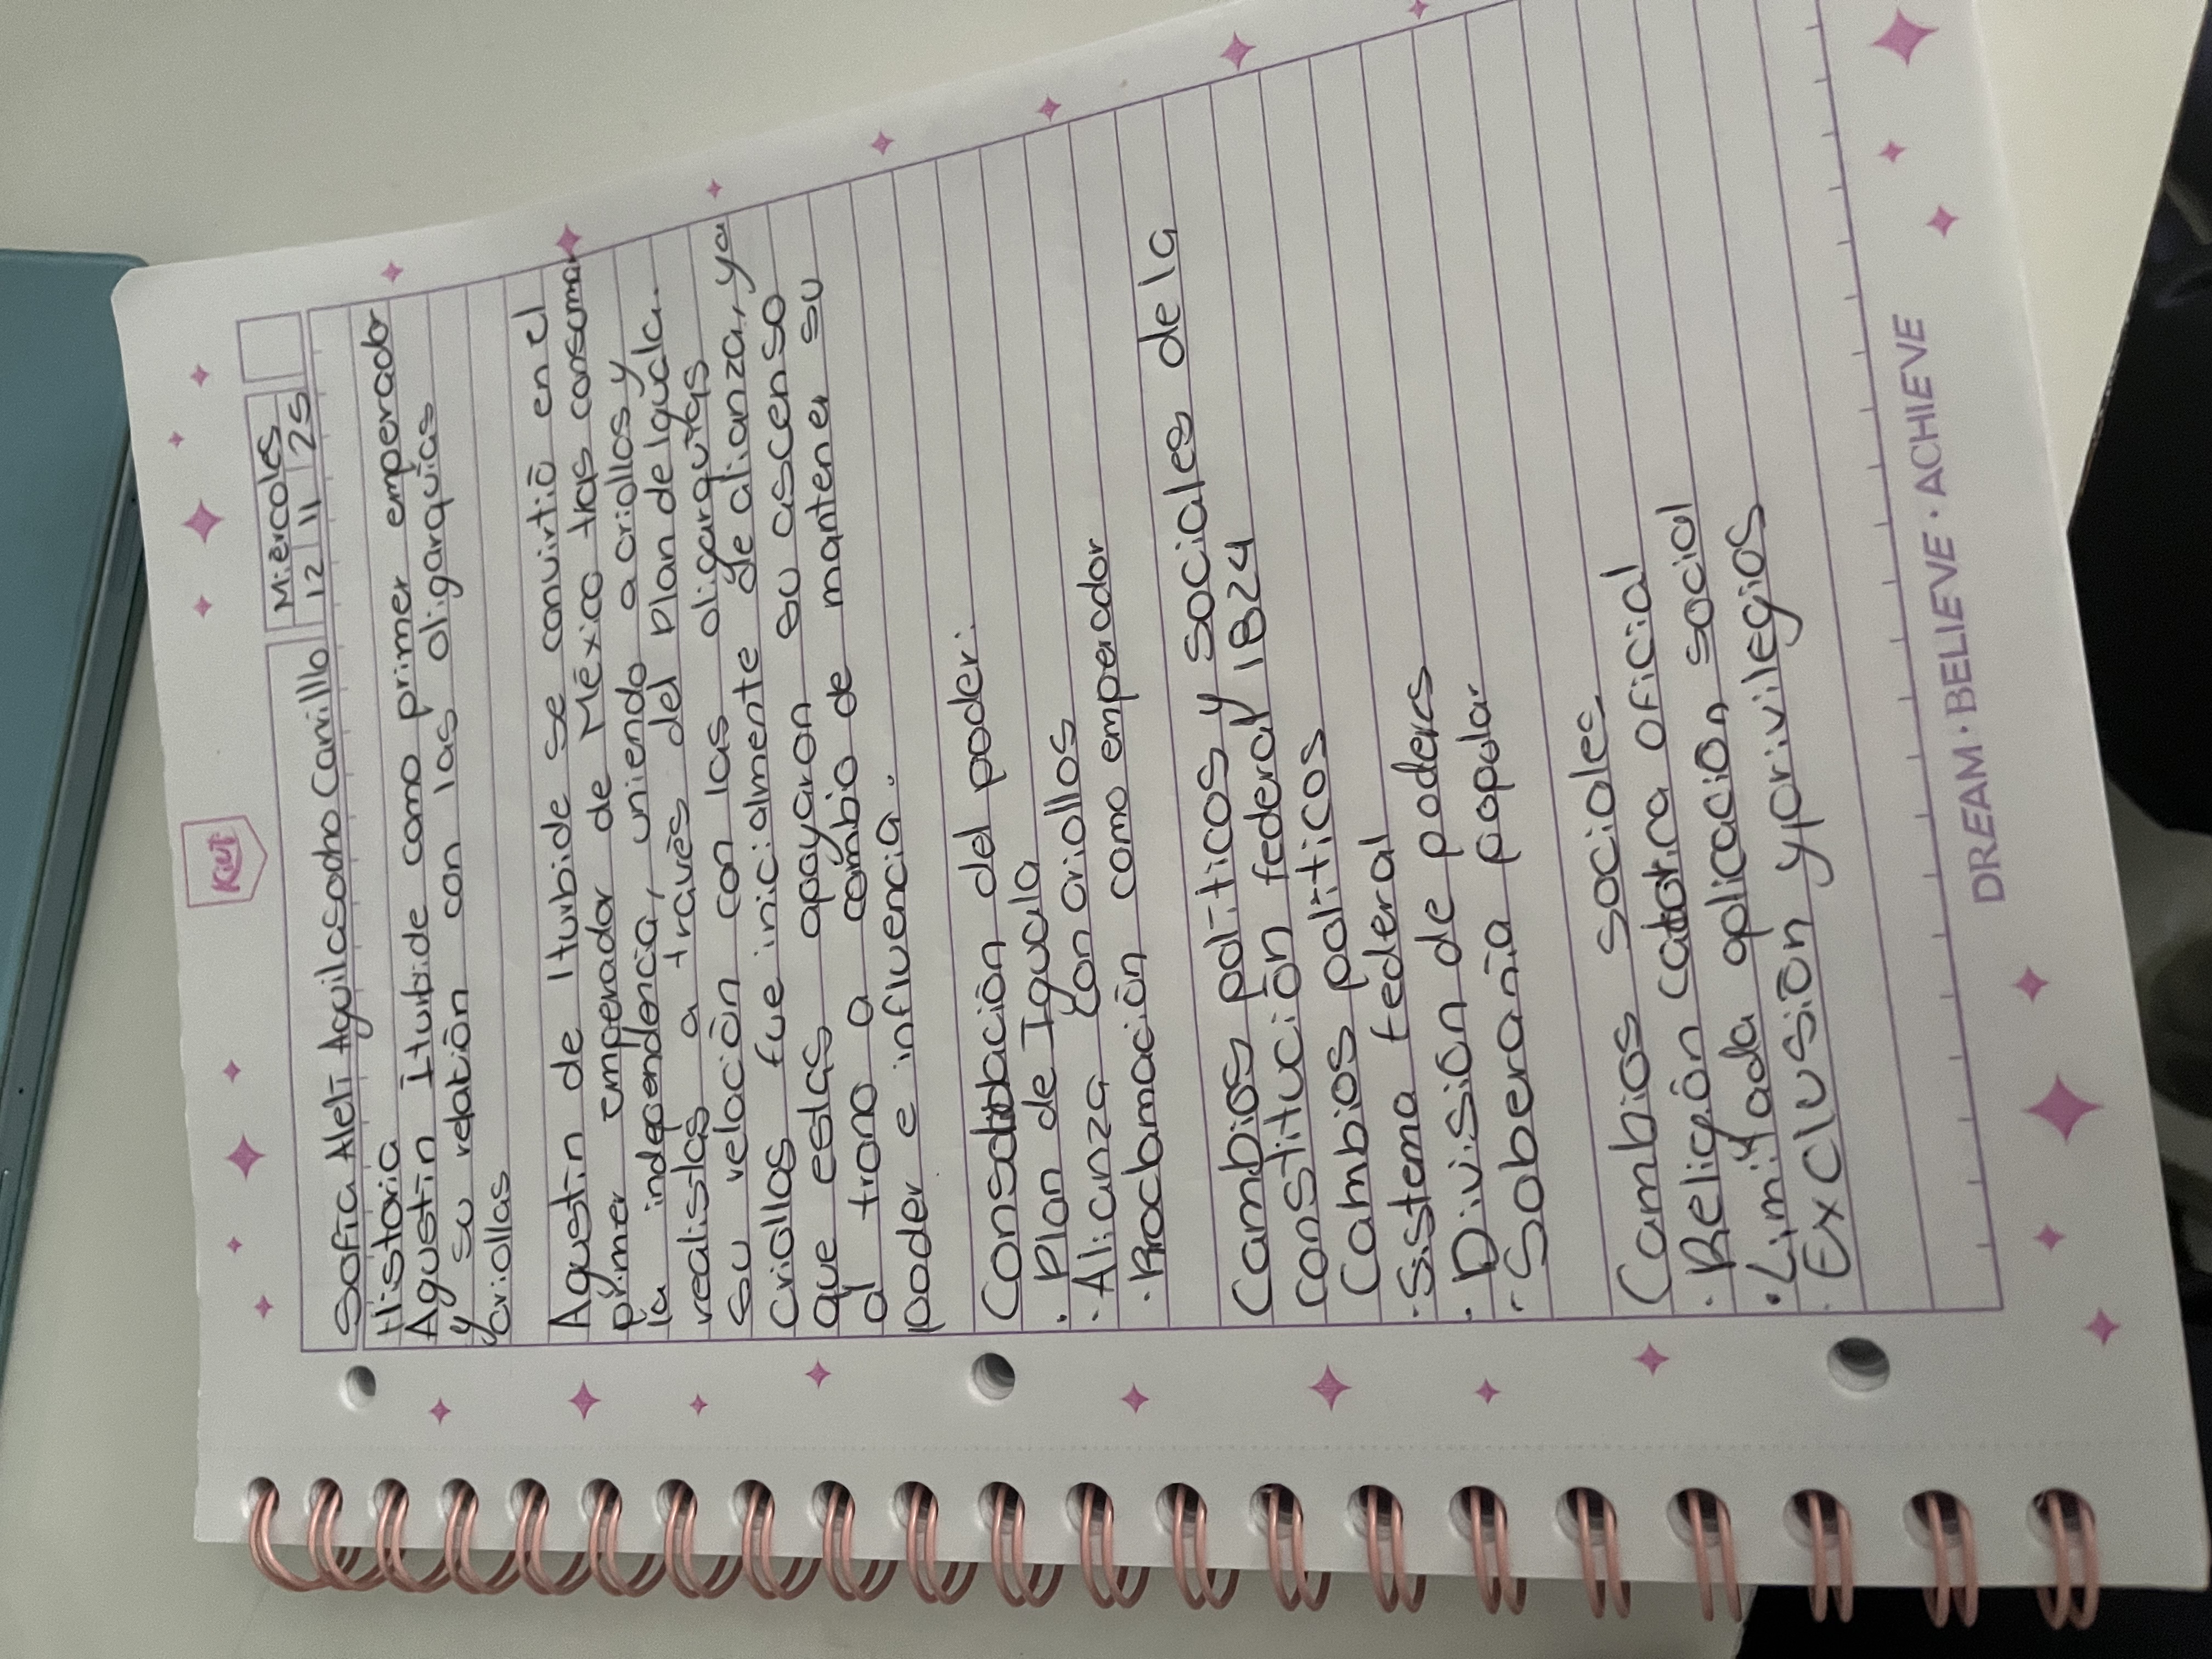 Kiut
Miércoles
12 11 25
Sofia Aleli Aguilasocho Carrillo
Historia
Agustín Iturbide como primer emperador
y su relatión con las oligarquías
criollas
Agustín de Iturbide se convirtió en el
primer emperador de México tras consumar
la independencia, uniendo a criollos y
realistas a través del Plan de Iguala.
su relación con las oligarquías
criollas fue inicialmente de alianza, ya
que estas apoyaron su ascenso
al trono a cambio de mantener su
poder e influencia.
Consolidación del poder:
· Plan de Iguala
· Alianza con criollos
· Proclamación como emperador
Cambios políticos y sociales de la
constitución federal 1824
Cambios políticos
· Sistema federal
· División de poderes
· Soberanía popular
Cambios sociales
· Religión católica oficial
· Limitada aplicación social
· Exclusión y privilegios
DREAM · BELIEVE · ACHIEVE